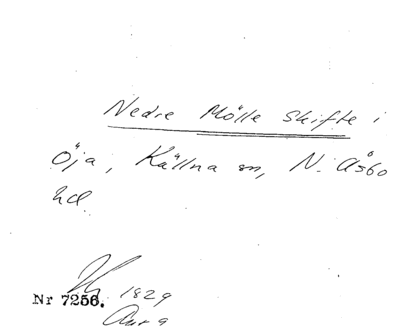 Nedre Mölle Skifte i
Öja, Källna sn, N. Åsbo
hd.
Nr 7256. 1829